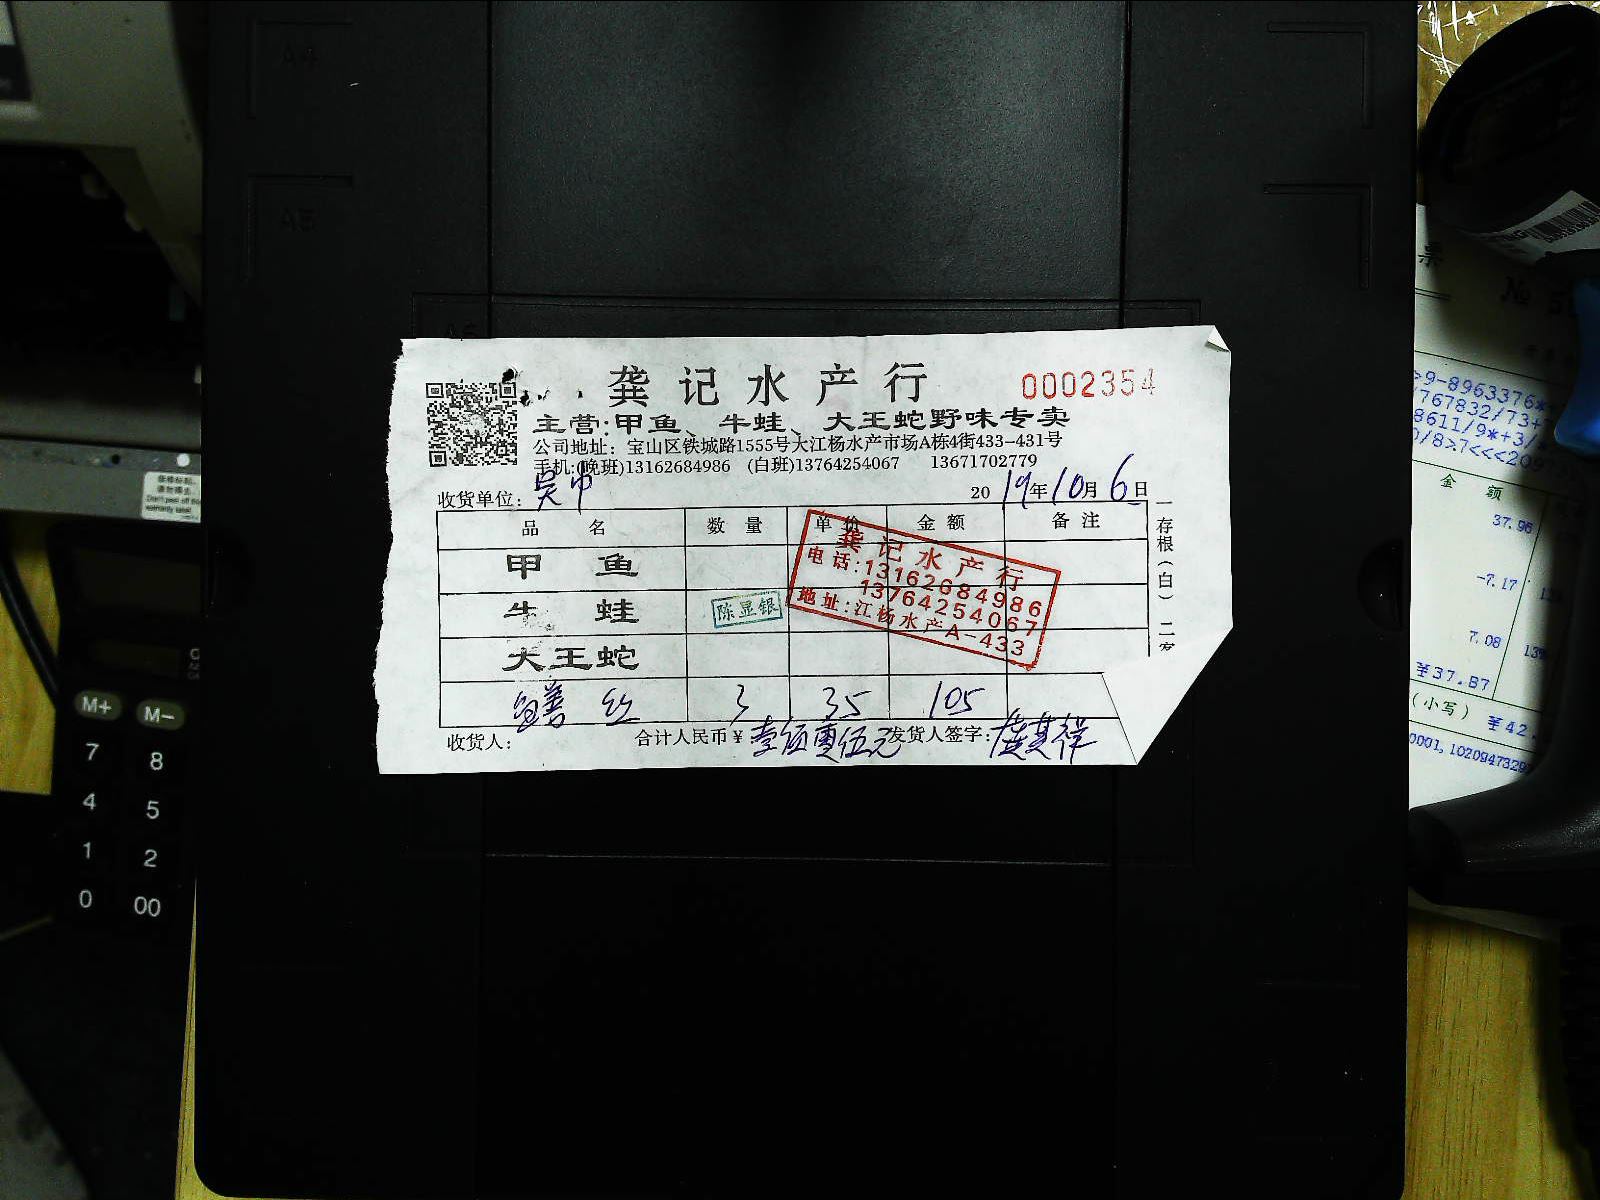 龚记水产行
0002354
主营:甲鱼、牛蛙、大王蛇野味专卖
公司地址：宝山区铁城路1555号大江杨水产市场A栋4街433-431号
手机:(晚班)13162684986 (白班)13764254067 13671702779
收货单位：吴巾
2019年10月6日
品名 数量 单价 金额 备注
甲鱼
牛蛙
大王蛇
鳝丝 3 35 105
收货人：
合计人民币￥壹佰零伍元
发货人签字：龚其祥
存根(白) 二
龚记水产行
电话:13162684986
13764254067
地址:江杨水产A-433
陈显银
A4
A5
A6
M+ M-
7 8
4 5
1 2
0 00
票
№ 5
>9-8963376*
767832/73+
8611/9*+3/
0/8>7<<<209
金额
37.96
-7.17
7.08 13%
¥37.87
(小写) ¥42.
0001,1020947329